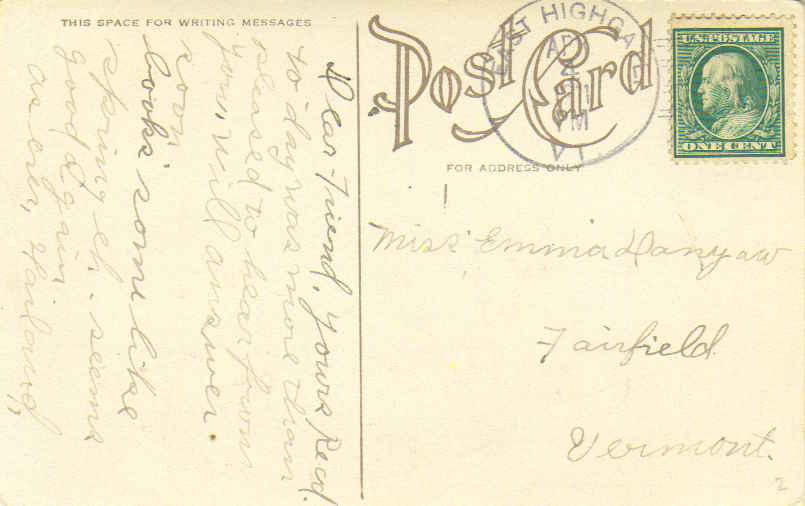 THIS SPACE FOR WRITING MESSAGES
Dear Friend, Yours Recd.
to day was more than
pleased to hear from
you, will answer
soon.
looks some like
spring eh. seems
good again
as ever,
Post Card
EAST HIGHGATE
AP
PM
VT
FOR ADDRESS ONLY
U.S. POSTAGE
ONE CENT
Miss Emma Danyaw
Fairfield
Vermont.
2